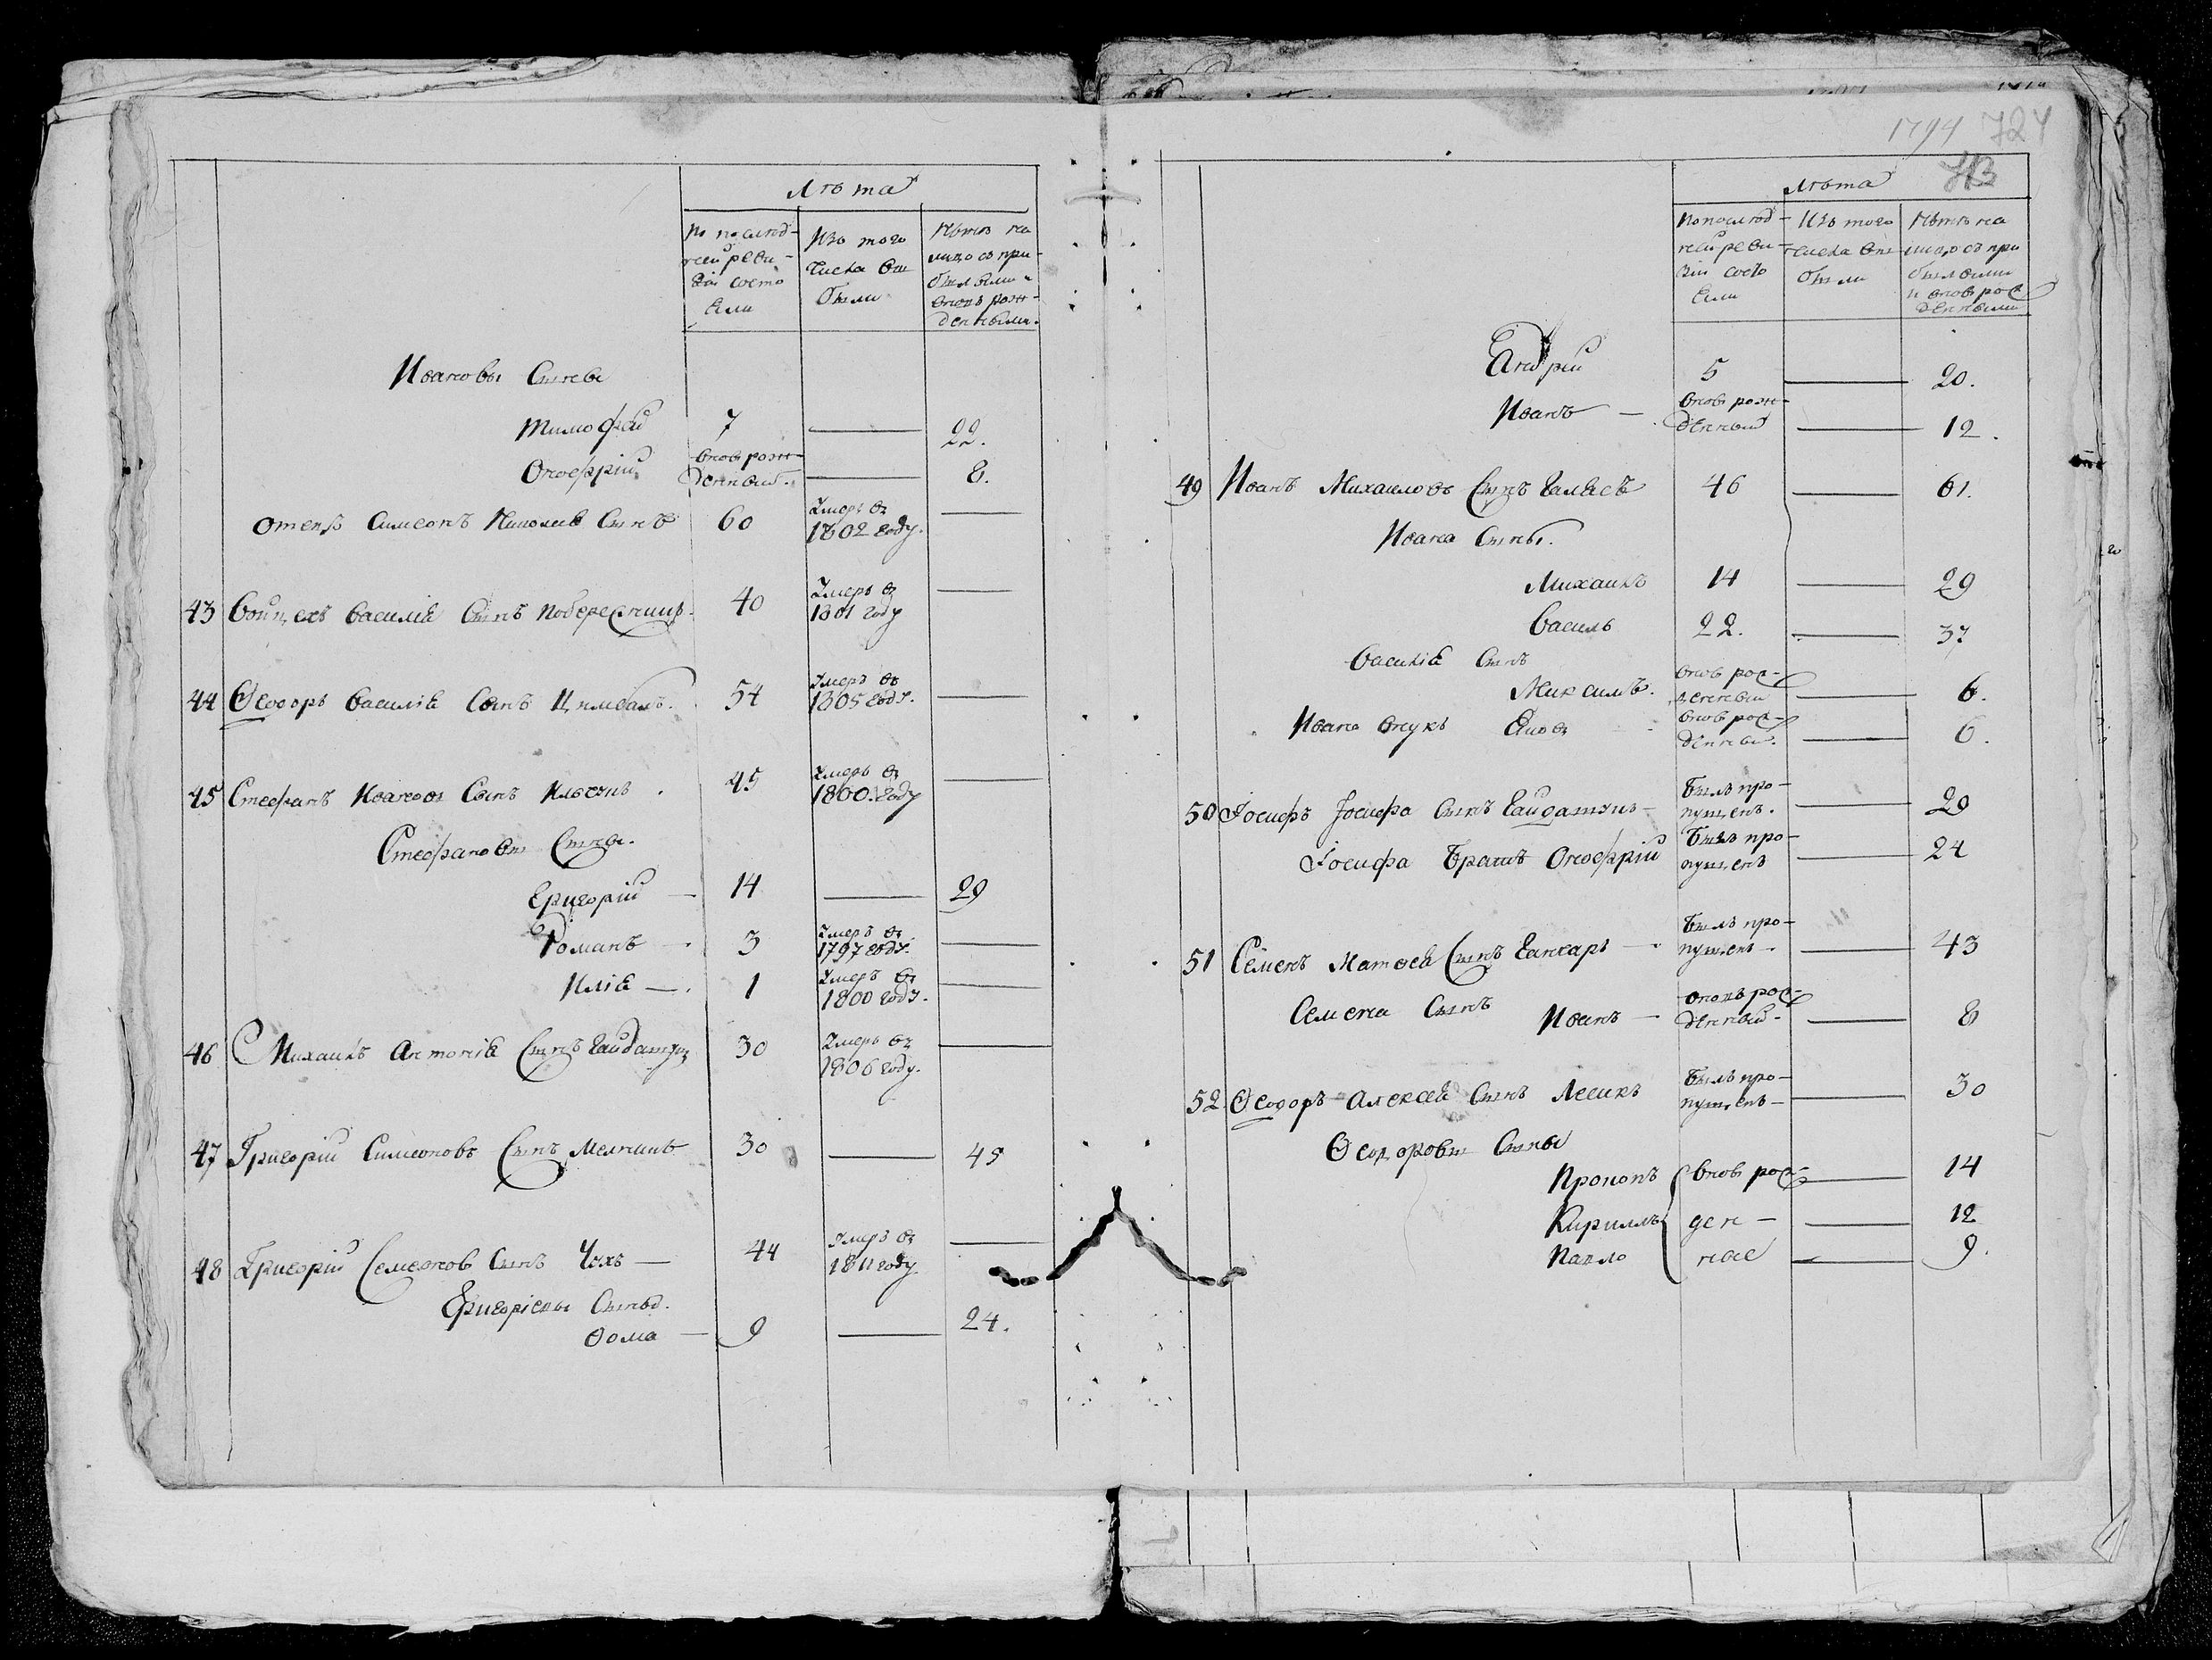 Лѣта
по послед-
ней реви-
зіи состо
яли
Изъ того
числа вы
были
Нынѣ на
лицо съ при-
былыми и
вновь рож-
денными.
Ивановы Сынове
Тимофей 7 — 22.
Онофрій вновь рож-
денный. — 8.
отецъ Симеонъ Николаев Сынъ 60 Умеръ въ
1802 году. —
43 Войцехъ Василіев Сынъ Побережникъ 40 Умеръ въ
1801 году —
44 Ѳеодоръ Василіев Сынъ Цимбалъ. 54 Умеръ въ
1805 году. —
45 Стефанъ Ивановъ Сынъ 45 Умеръ въ
1800. году —
Стефановы Сынове.
Григорій — 14 — 29
Романъ — 3 Умеръ въ
1797 году. —
Илія — 1 Умеръ въ
1800 году. —
46 Михаилъ Антонів Сынъ Гайдамук 30 Умеръ въ
1806 году. —
47 Григорій Симеоновъ Сынъ Мелникъ 30 — 45
48 Григорій Семеонов Сынъ Чохъ — 44 Умеръ въ
1811 году —
Григоріевы Сынове.
Ѳома — 9 — 24.
1794 724
713
Лѣта
По послед-
ней реви-
зіи состо
яли
Изъ того
числа вы
были
Нынѣ на
лицо съ при
былыми
и вновь рож
денными
Андрій 5 — 20.
Иванъ — вновь рож-
денный — 12.
49 Иванъ Михаиловъ Сынъ Галасъ 46 — 61.
Ивана Сыны.
Михаилъ 14 — 29
Василь 22. — 37
Василія Сынъ
Максимъ. вновь рож-
денный — 6.
Ивана внукъ Яков вновь рож-
денный. — 6.
50 Іосифъ Іосифа Сынъ Гайдамукъ — былъ про-
пущенъ. — 29
Іосифа Братъ Онофрій былъ про-
пущенъ — 24
51 Семенъ Матвея Сынъ Ганчаръ — былъ про-
пущенъ. — 43
Семена Сынъ
Иванъ — вновь рож-
денный — 8
52. Ѳеодоръ Алексея Сынъ Лесикъ былъ про-
пущенъ — 30
Ѳеодоровы Сыны
Прокопъ вновь рож- — 14
Кириллъ ден — 12
Павло ные — 9.